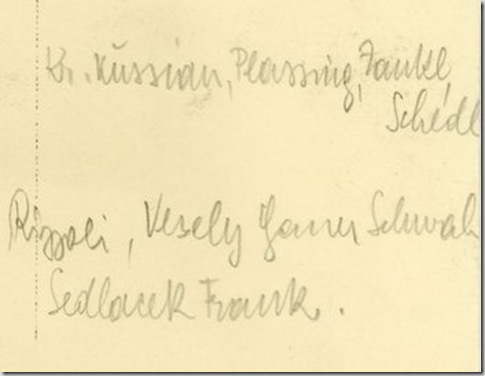 Dr. Küssian, Plassnig, Zankl,
Schédl
Rizzoli, Vesely Schwab
Sedlacek Frank.